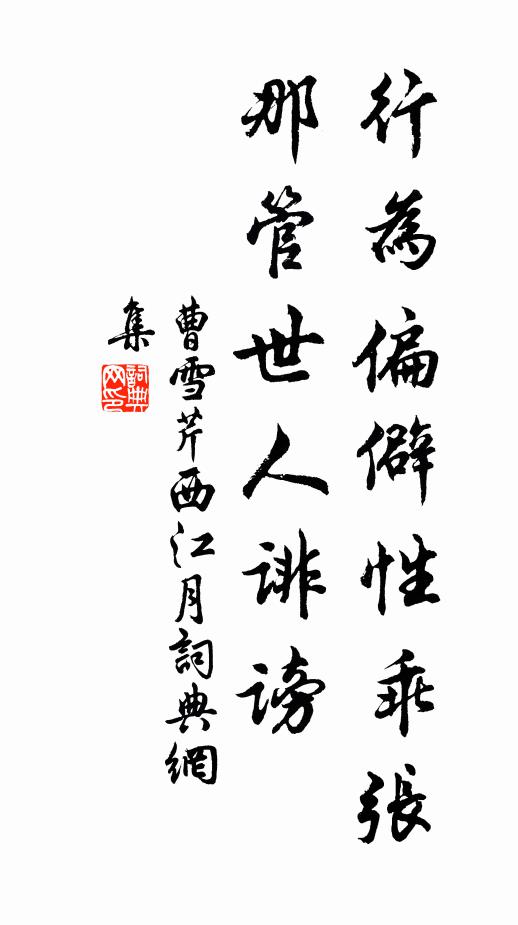 行為偏僻性乖張
那管世人誹謗
曹雪芹西江月詞典網
集
詞典
网印